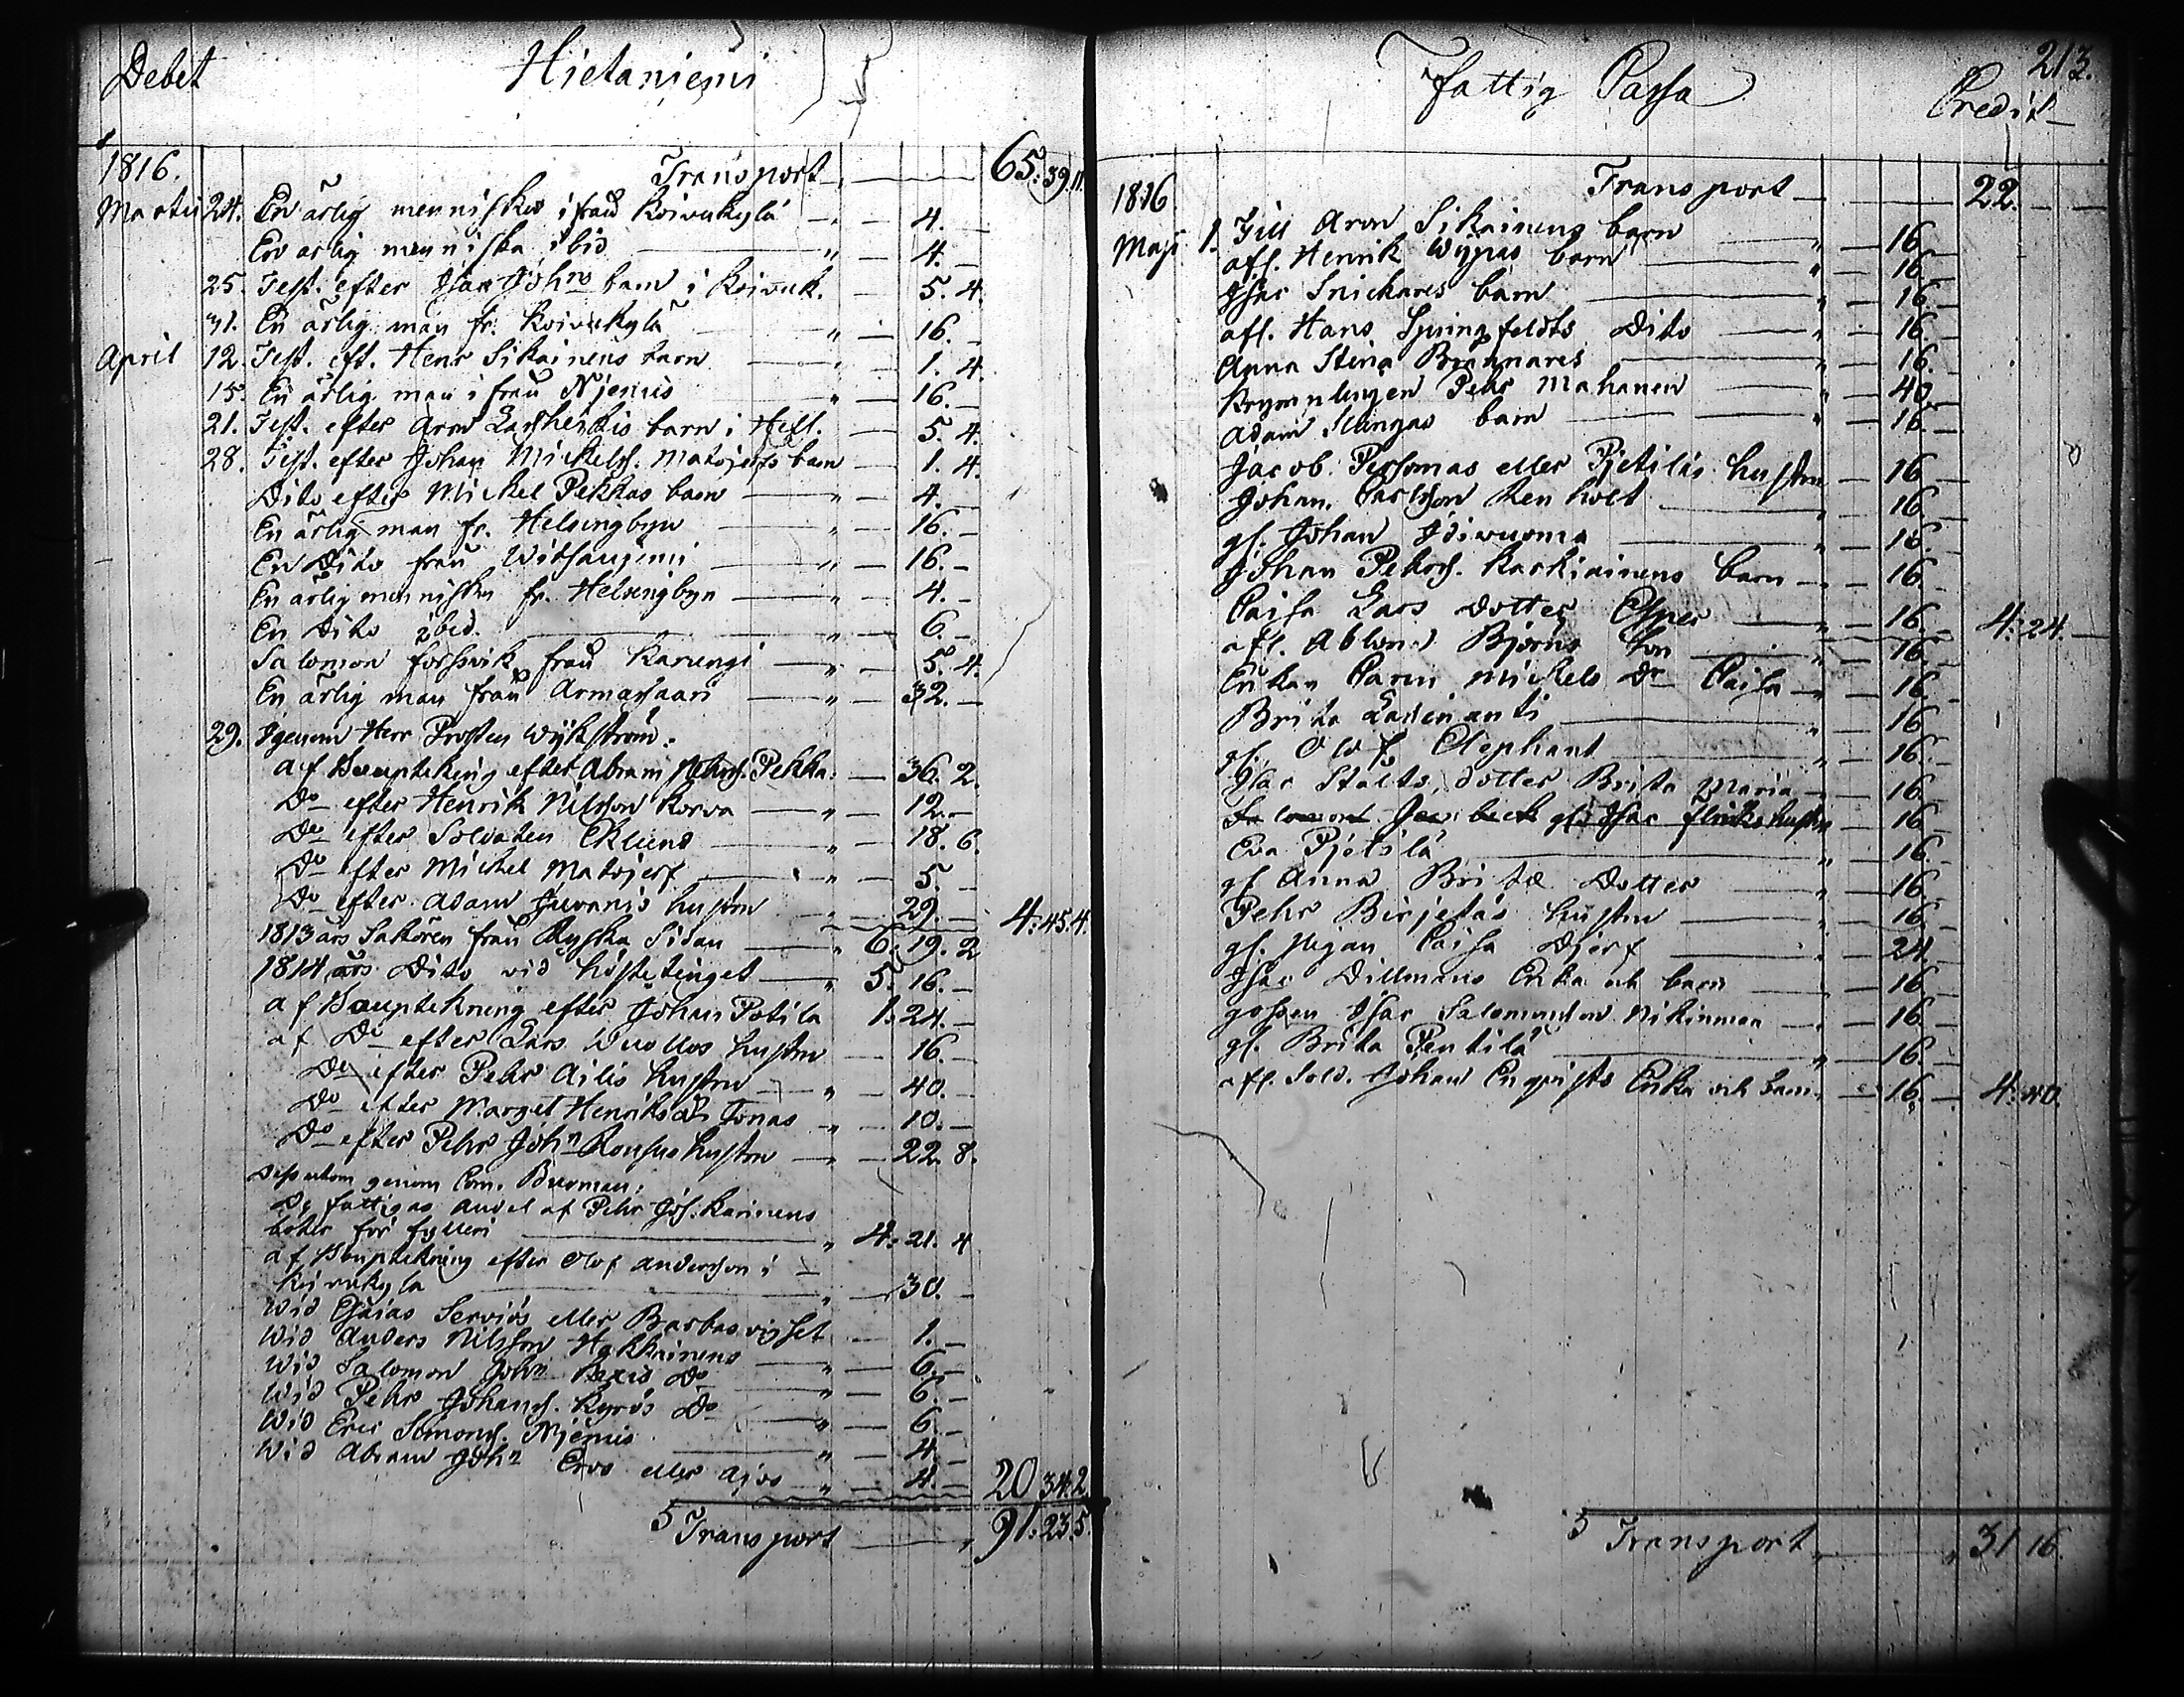 Debet Hietaniemi
1816. Transport 65:39.11.
Martii 24. En ärlig menniska ifrån Koivukylä 4.
En ärlig menniska ibid 4.
25. Test. efter Isac Johns barn i Koivuk. 5.4.
31. En ärlig man fr. Koivukylä 16.
April 12. Test. eft. Henr Sikainens barn 1.4.
15. En ärlig man ifrån Njemis 16.
21. Test. efter Aron barn i Hels. 5.4.
28. Test. efter Johan Mickelss. Matojerfs barn 1.4.
Dito efter Mickel Pekkas barn 4.
En ärlig man fr. Helsingbyn 16.
En Dito från Witsaniemi 16.
En ärlig menniska fr. Helsingbyn 4.
En Dito ibid. 6.
Salomon Forssvik från Karungi 5.4.
En ärlig man från Armassaari 32.
29. Igenom Herr Prosten Wijkström:
af Bouptekning efter Abram Pehrss. Pekka 36.2.
Do efter Henrik Nilsson Korva 12.
Do efter Soldaten Eklund 18.6.
Do efter Mickel Matojerf 5.
Do efter Adam Juvanis hustru 29. 4:45.4.
1813 års Sakören från Ryska Sidan 6.19.2
1814 års Dito vid höstetinget 5.16.
af Bouptekning efter Johan Potila 1.24.
af Do efter Lars Wuollos hustru 16.
Do efter Pehr Ailis hustru 40.
Do efter Marget Henriksdr Jonas 10.
Do efter Pehr John Rousus hustru 22.8.
Dessutom genom Com. Burman:
De fattigas andel af Pehr Joh. Karinens
böter för fylleri 4:21.4
af Bouptekning efter Olof Andersson i
Koivukyla 30.
Wid Esaias Serviös eller Barbas vigsel 1.
Wid Anders Nilsson Hykkainens 6.
Wid Salomon Johns Do 6.
Wid Pehr Johanss. Kyrös Do 6.
Wid Eric Simonss. Njemis 4.
Wid Abram Johns Eros eller Ajos 4. 20 34.2
5 Transport 91:23.5
Fattig Cassa Credit 213.
1816 Transport 22.
Maji 1. Till Aron Sikainens barn 16.
afl. Henrik Wyjnas barn 16.
Isac Snickares barn 16.
afl. Hans Springfeldts Dito 16.
Anna Stina Brännares 16.
Krymplingen Pehr Mahanen 40.
Adam Slungas barn 16.
Jacob Perssomas eller Pjetiläs hustru 16
Johan Carlsson Renholt 16.
gl. Johan 16.
Johan Pehrss. Karkiainens barn 16.
Caisa Lars dotter Esper 16. 4:24.
afl. Björns Son 16.
Enkan Carin Mickels Dr Caisa 16.
Brita 16
gl. Olof Elephant 16.
Isac Stålts dotter Brita Maria 16.
gl. Isac Flinks hustru 16
Eva Pjetilä 16.
gl Anna Brita Dotter 16.
Pehr Birjetäs hustru 16.
gl. Pigan Caisa Djerf 24.
Isac Dillmans Enka och barn 16
gossen Isac Salomonsson Nikinmaa 16.
gl. Brita Pentilä 16.
afl. Sold. Johan Engqvists Enka och barn 16. 4:40.
5 Transport 31 16.